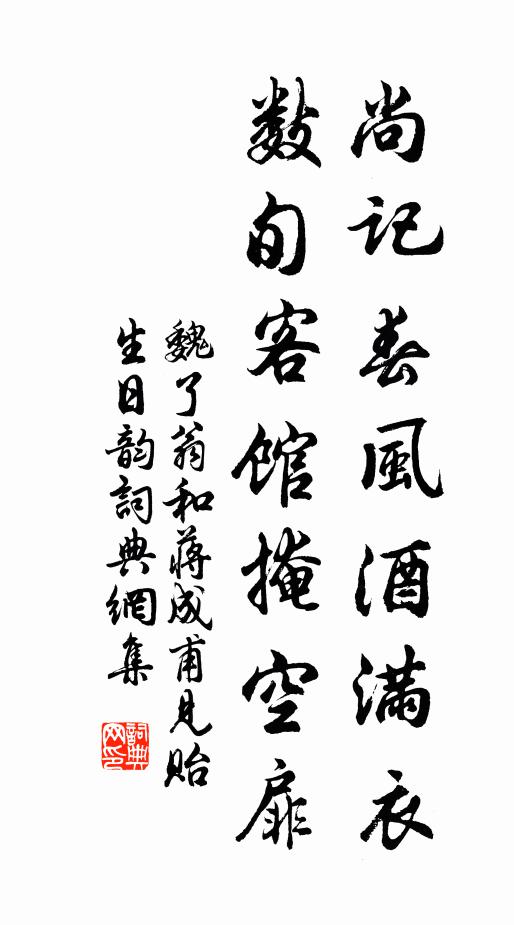 尚記春風酒滿衣
數旬客館掩空扉
魏了翁和蔣成甫見貽
生日韵詞典網集
詞典网印